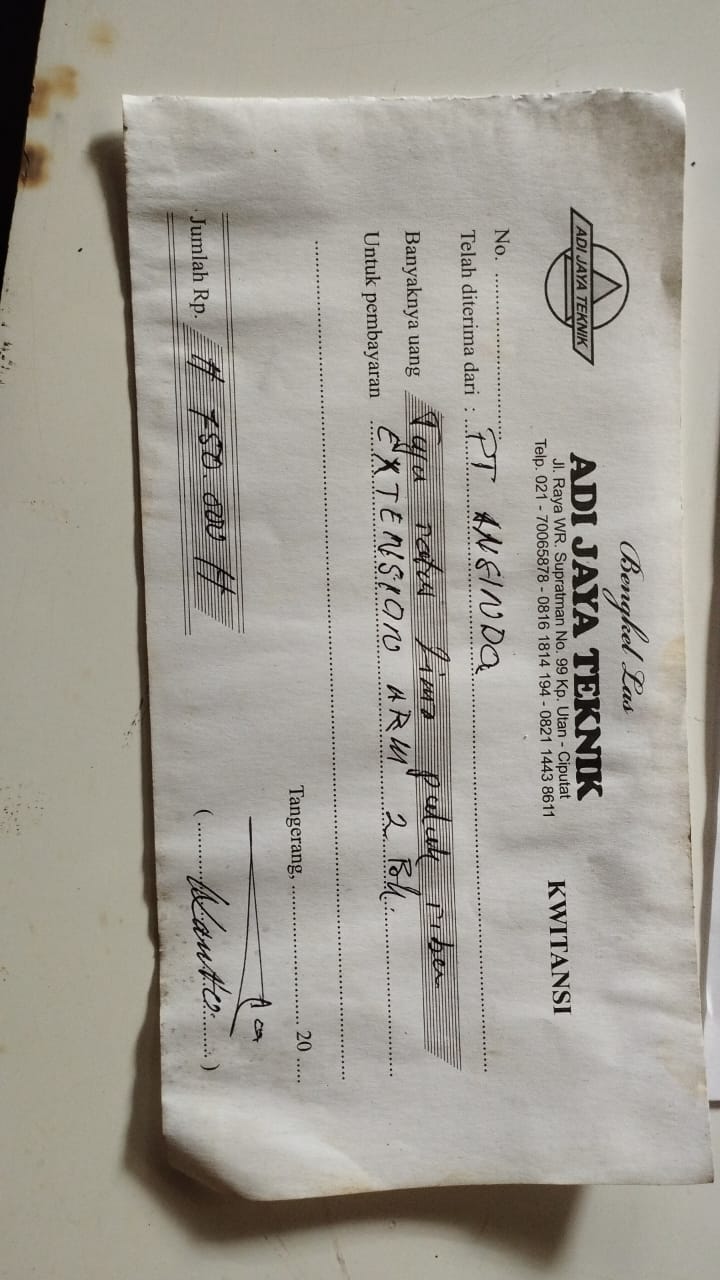 ADI JAYA TEKNIK
Bengkel Las
ADI JAYA TEKNIK
Jl. Raya WR. Supratman No. 99 Kp. Utan - Ciputat
Telp. 021 - 70065878 - 0816 1814 194 - 0821 1443 8611
KWITANSI
No. ........................
Telah diterima dari : PT ANGINDA
Banyaknya uang Tuju ratus lima puluh ribu
Untuk pembayaran EXTENSION ARM 2 Bh.
Tangerang, ........................ 20 .....
Jumlah Rp. # 750.000 #
(.......Wanto.......)